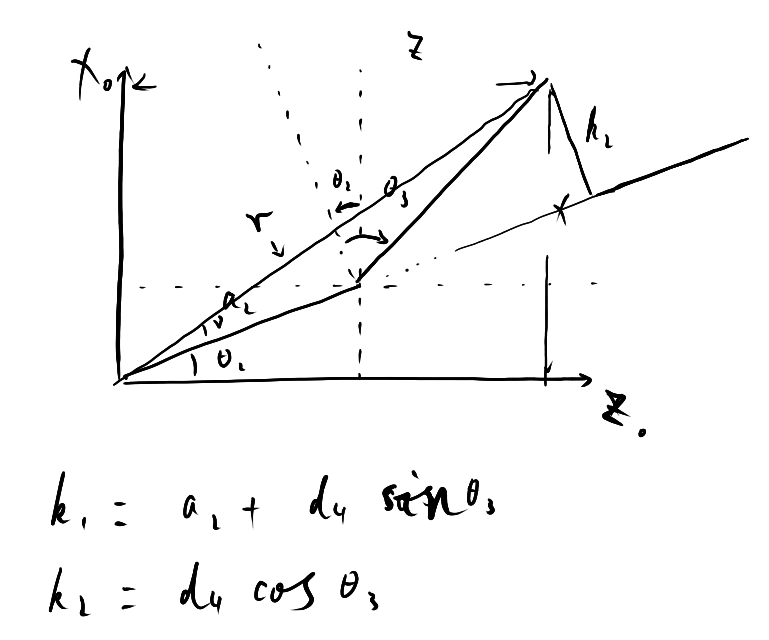 z
X₀
k₂
θ₂
θ₃
r
x
a₂
θ₂
Z₀
k₁ = a₂ + d₄ sinθ₃
k₂ = d₄ cosθ₃